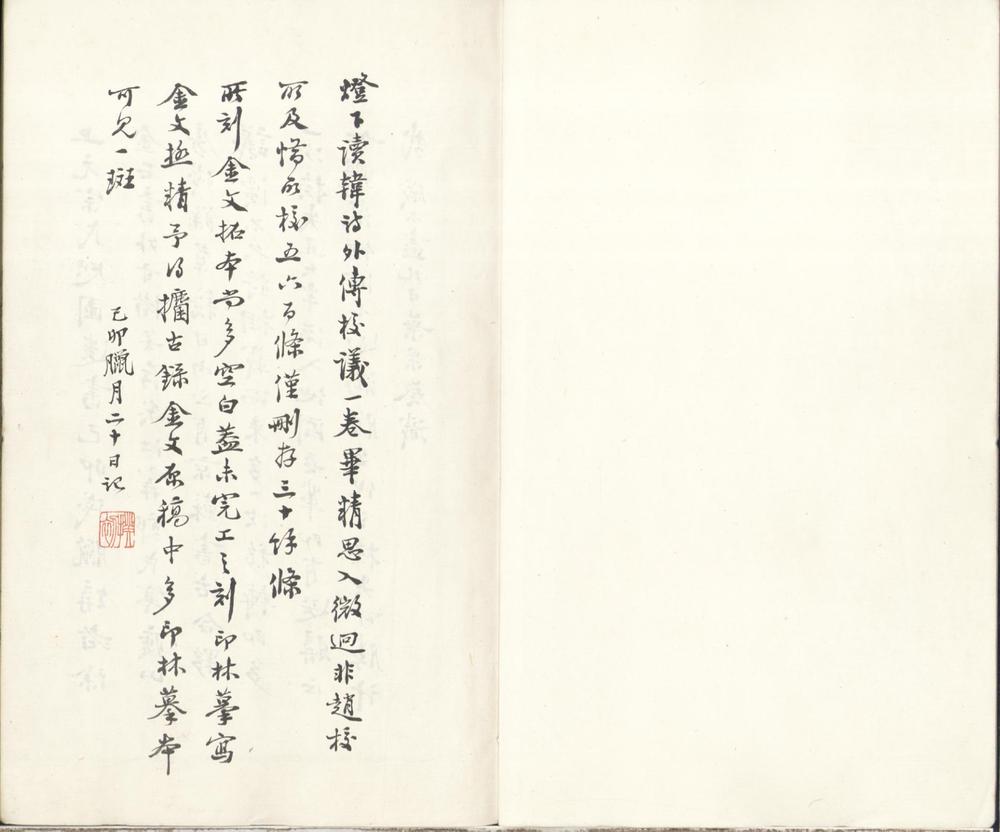 燈下讀韓詩外傳校議一卷畢精思入微迥非趙校
所及惜所校五六百條僅刪存三十餘條
所刻金文拓本尚多空白蓋未完工之刻印林摹寫
金文極精予得攟古錄金文原稿中多印林摹本
可見一斑
己卯臘月二十日記